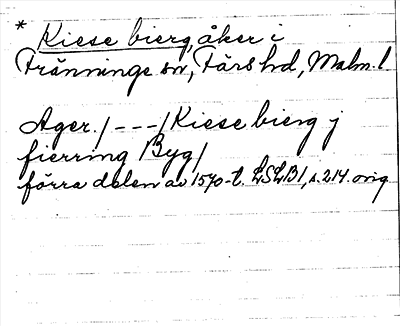 * Kiese bierg, åker i
Tränninge sn, Färs hd, Malm. l
Ager. / - - - / Kiese bierg j
fierring Byg /
förra delen av 1570-t. LSLB1, s. 214. orig